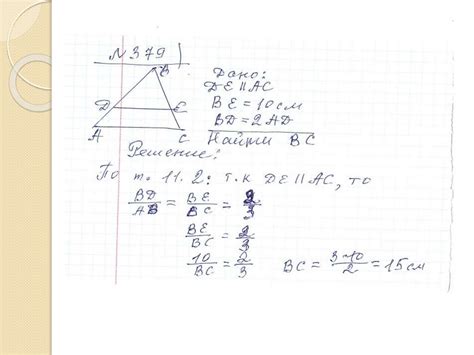 №379)
B
Дано:
DE || AC
D E
BE = 10 см
BD = 2AD
A C
Найти BC
Решение:
По т. 11.2: т.к DE || AC, то
BD/AB = BE/BC = 2/3
BE/BC = 2/3
10/BC = 2/3 BC = 3·10/2 = 15 см